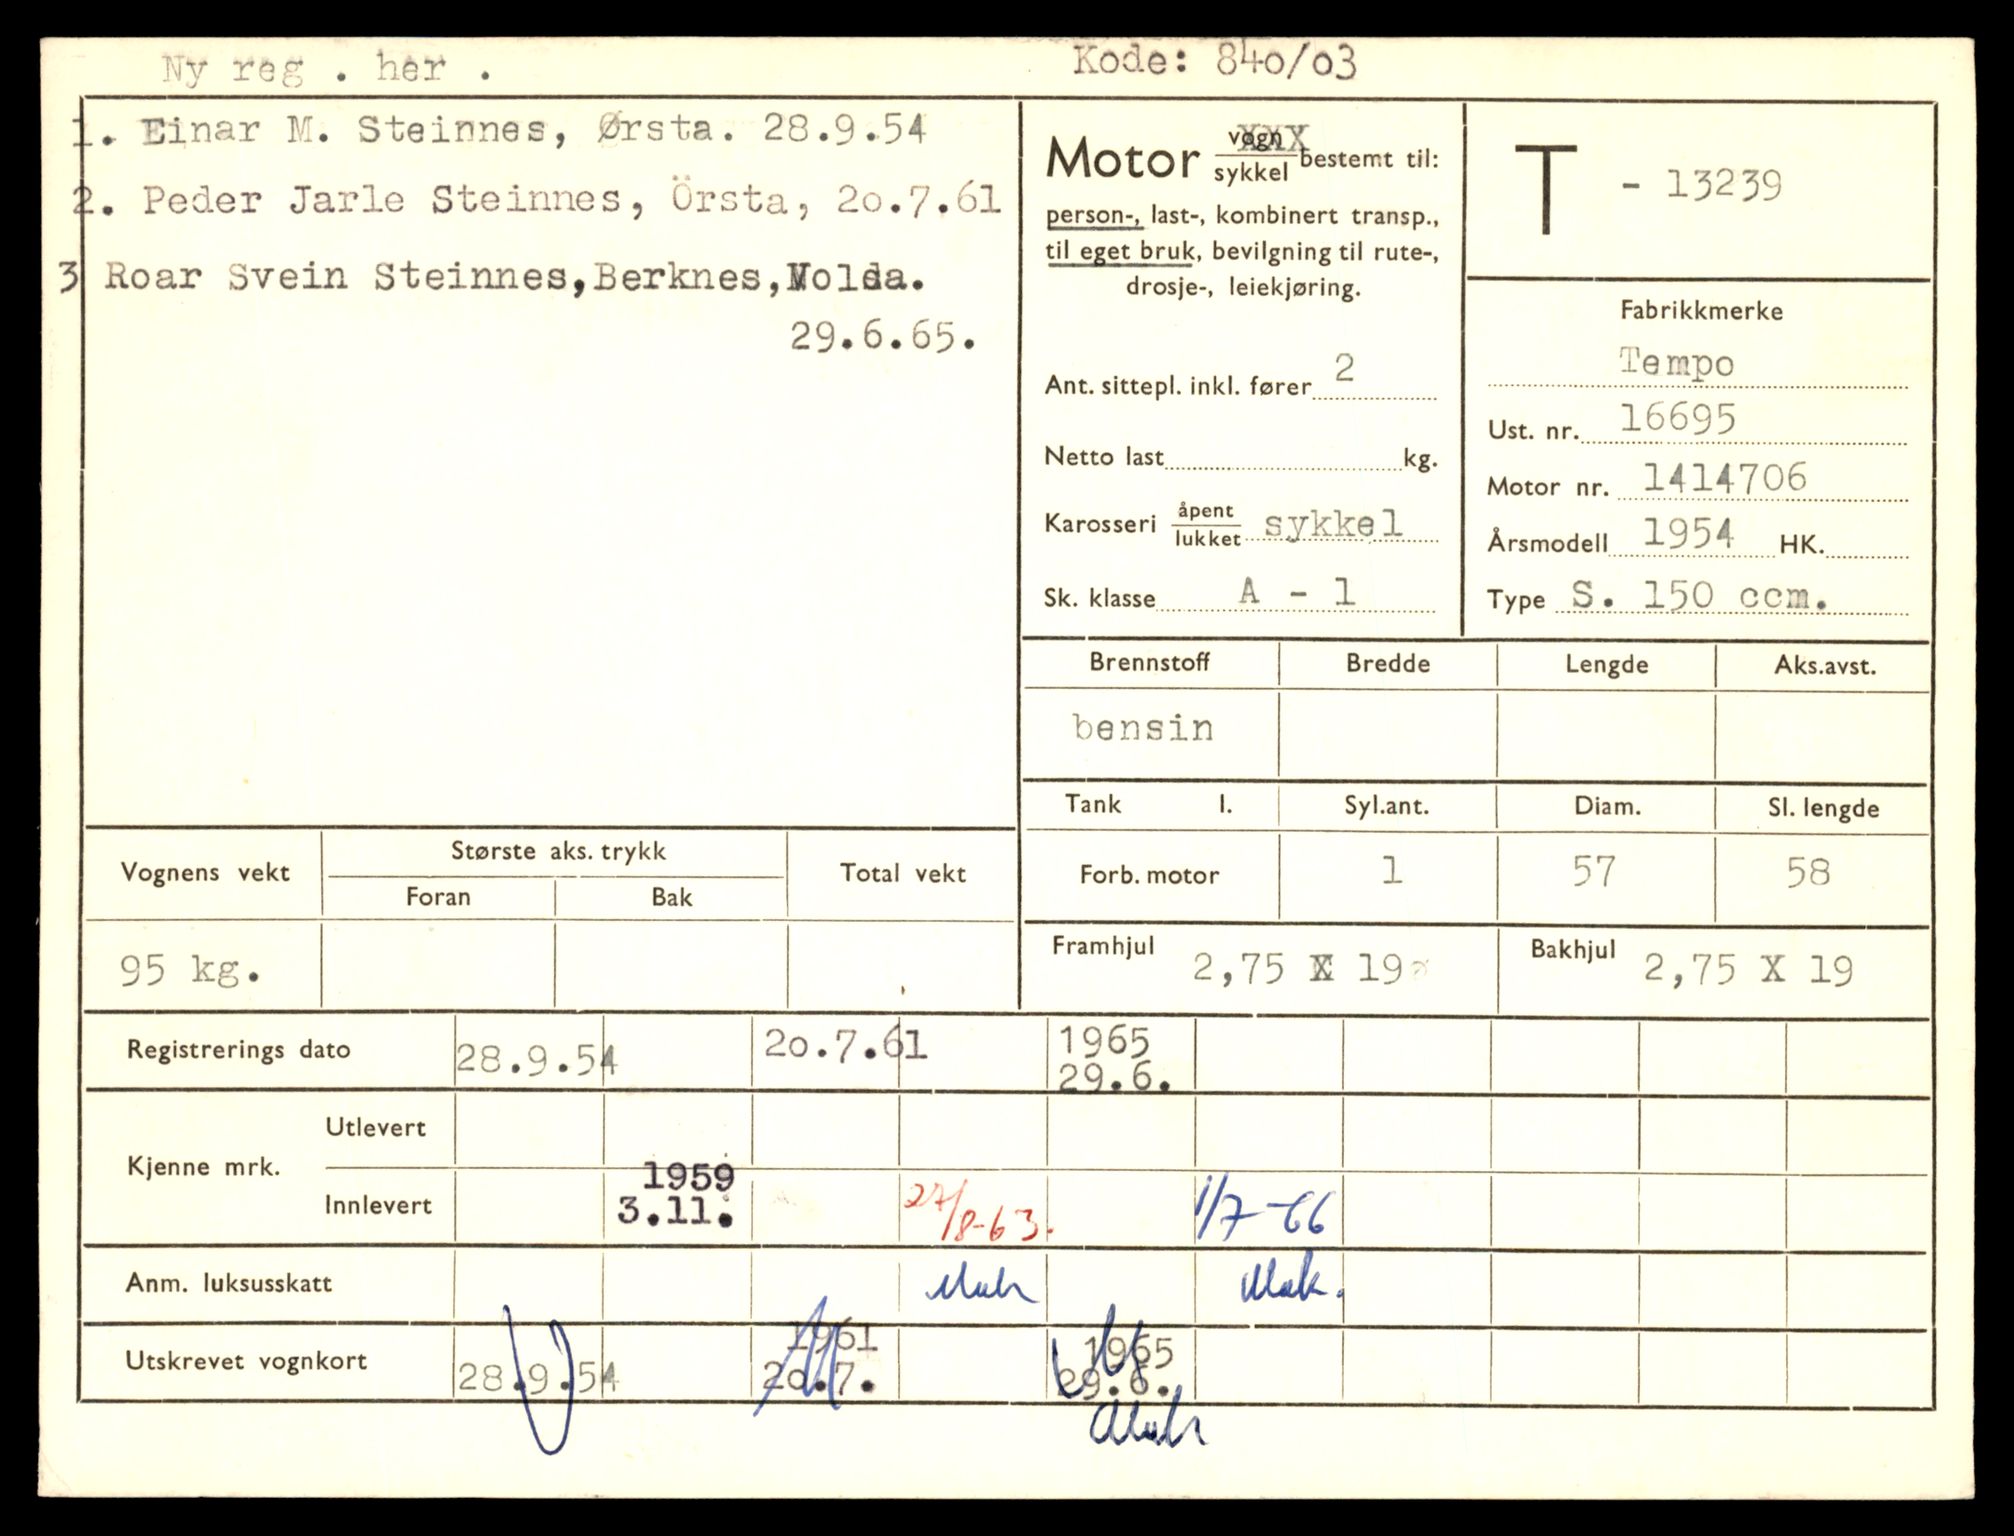 Ny reg . her .
Kode: 840/03
1. Einar M. Steinnes, Ørsta. 28.9.54
2. Peder Jarle Steinnes, Örsta, 20.7.61
3 Roar Svein Steinnes, Berknes, Volda.
29.6.65.
Motor vogn/sykkel bestemt til:
person-, last-, kombinert transp.,
til eget bruk, bevilgning til rute-,
drosje-, leiekjøring.
Ant. sittepl. inkl. fører 2
Netto last kg.
Karosseri åpent/lukket sykkel
Sk. klasse A - 1
T - 13239
Fabrikkmerke
Tempo
Ust. nr. 16695
Motor nr. 1414706
Årsmodell 1954 HK.
Type S. 150 ccm.
Brennstoff Bredde Lengde Aks.avst.
bensin
Tank l. Syl.ant. Diam. Sl. lengde
Forb. motor 1 57 58
Framhjul 2,75 X 19 Bakhjul 2,75 X 19
Vognens vekt Største aks. trykk Total vekt
Foran Bak
95 kg.
Registrerings dato 28.9.54 20.7.61 1965
29.6.
Kjenne mrk. Utlevert
Innlevert 1959
3.11. 27/8-63. 1/7-66
Anm. luksusskatt
Utskrevet vognkort 28.9.54 1961
20.7. 1965
29.6.